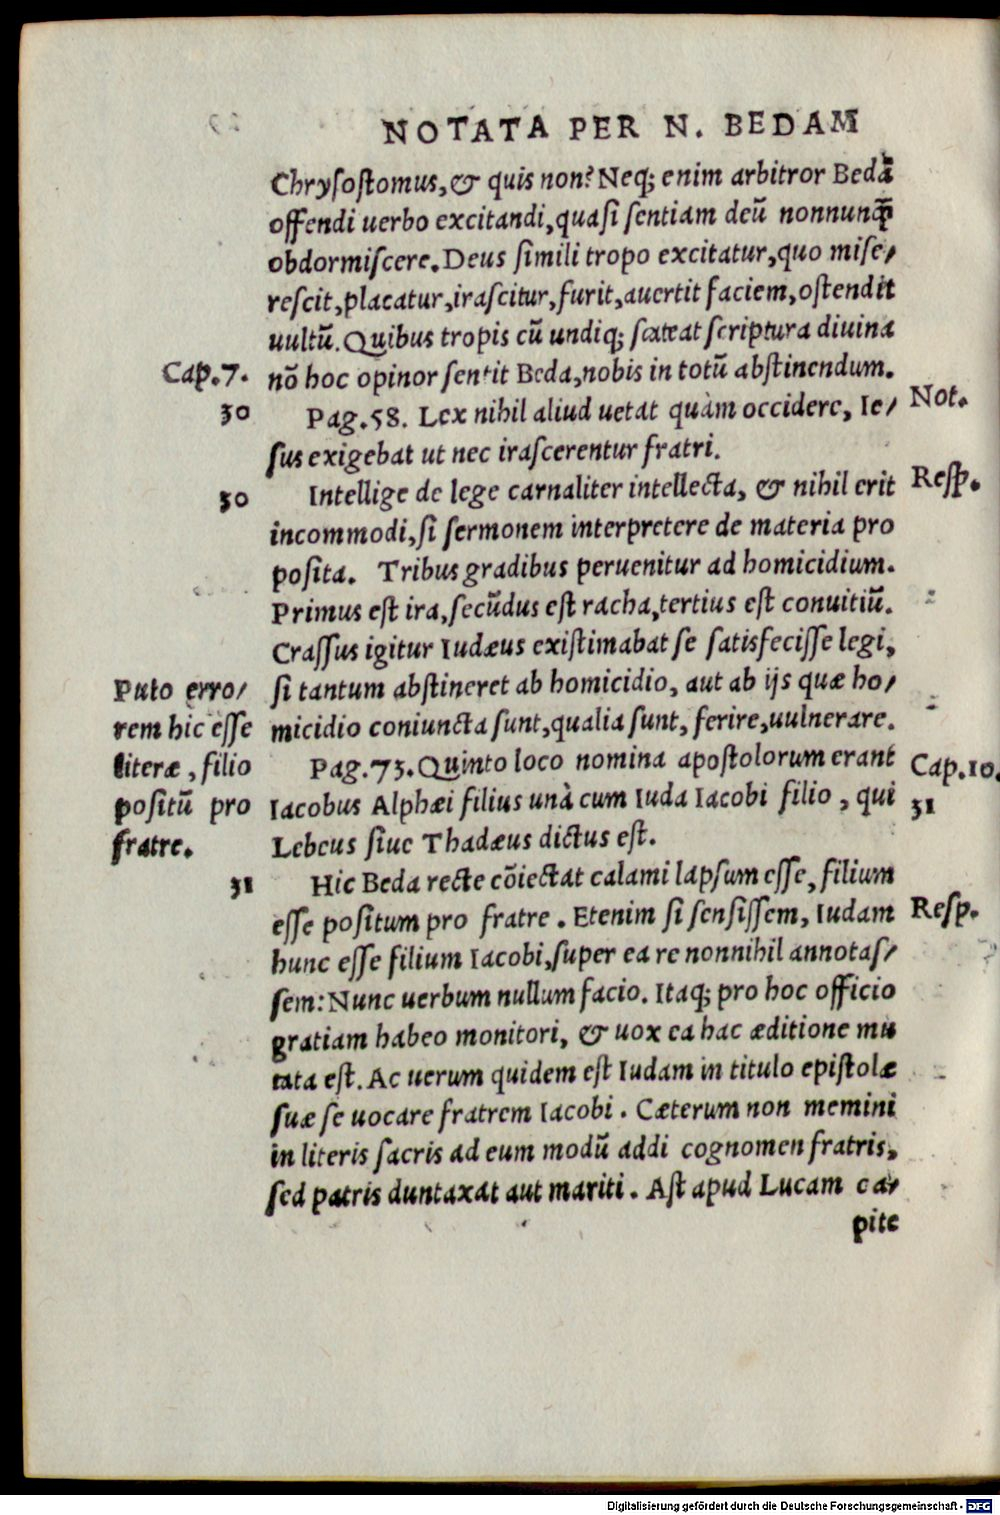 NOTATA PER N. BEDAM
Chrysostomus, & quis non? Neq; enim arbitror Bedā
offendi uerbo excitandi, quasi sentiam deū nonnunꝙ̄
obdormiscere. Deus simili tropo excitatur, quo mise/
rescit, placatur, irascitur, furit, auertit faciem, ostendit
uultū. Quibus tropis cū undiq; scateat scriptura diuina
Cap. 7. nō hoc opinor sentit Beda, nobis in totū abstinendum.
30 Pag. 58. Lex nihil aliud uetat quàm occidere, Ie/ Not.
sus exigebat ut nec irascerentur fratri.
30 Intellige de lege carnaliter intellecta, & nihil erit Resp.
incommodi, si sermonem interpretere de materia pro
posita. Tribus gradibus peruenitur ad homicidium.
Primus est ira, secūdus est racha, tertius est conuitiū.
Crassus igitur Iudæus existimabat se satisfecisse legi,
si tantum abstineret ab homicidio, aut ab ijs quæ ho/
micidio coniuncta sunt, qualia sunt, ferire, uulnerare.
Puto erro/
rem hic esse
literæ, filio
positū pro
fratre.
Pag. 73. Quinto loco nomina apostolorum erant Cap. 10.
Iacobus Alphæi filius unà cum Iuda Iacobi filio, qui 31
Lebeus siue Thadæus dictus est.
31 Hic Beda recte cōiectat calami lapsum esse, filium
esse positum pro fratre. Etenim si sensissem, Iudam Resp.
hunc esse filium Iacobi, super ea re nonnihil annotas/
sem: Nunc uerbum nullum facio. Itaq; pro hoc officio
gratiam habeo monitori, & uox ea hac æditione mu
tata est. Ac uerum quidem est Iudam in titulo epistolæ
suæ se uocare fratrem Iacobi. Cæterum non memini
in literis sacris ad eum modū addi cognomen fratris,
sed patris duntaxat aut mariti. Ast apud Lucam ca/
pite
Digitalisierung gefördert durch die Deutsche Forschungsgemeinschaft - DFG